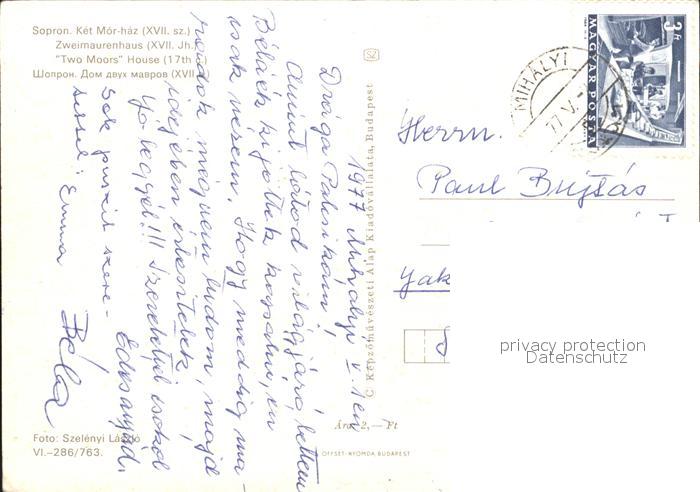 Sopron. Két Mór-ház (XVII. sz.)
Zweimaurenhaus (XVII. Jh.)
"Two Moors" House (17th
Шопрон. Дом двух мавров (XVII
1977 Mihályi V. 1én
Drága Palcsikám!
Amint látod világjáró lettem
Béláék kijöttek hozzám, én
csak nézem. Hogy meddig ma-
radok még nem tudom, majd
idejében értesítelek.
Jó legyél!!! Szeretettel csókol
Édesanyád.
Sok puszit szere-
tettel: Emma Béla
Foto: Szelényi László
VI.–286/763.
© Képzőművészeti Alap Kiadóvállalata, Budapest
Ára 2,— Ft
OFFSET-NYOMDA, BUDAPEST
3 Ft
MAGYAR POSTA
MIHÁLYI
77 V.
Herrn.
Paul Bujtás
Yak
privacy protection
Datenschutz